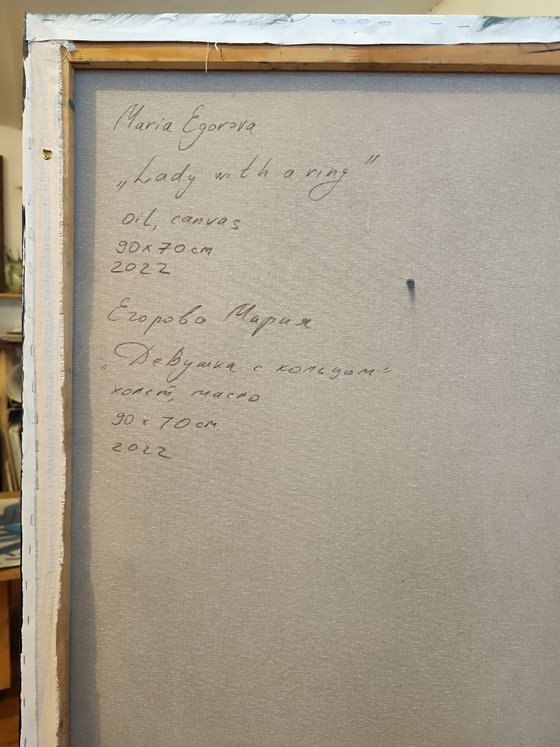 Maria Egorova
„Lady with a ring”
oil, canvas
90x70 cm
2022
Егорова Мария
„Девушка с кольцом“
холст, масло
90 x 70 см
2022